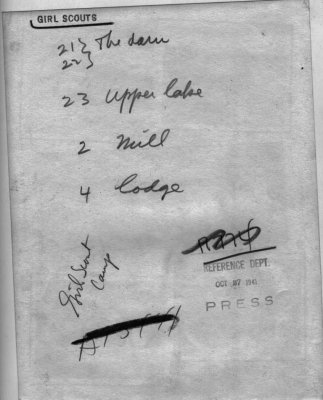 GIRL SCOUTS
21} The dam
22}
23 Upper lake
2 Mill
4 lodge
Girl Scout
Camp
REFERENCE DEPT.
OCT 27 1941
PRESS